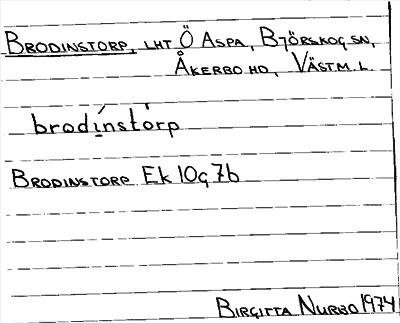 BRODINSTORP, LHT Ö ASPA, BJÖRSKOG SN,
ÅKERBO HD, VÄSTM. L.
brodí̱nstórp
BRODINSTORP Ek 10g 7b
BIRGITTA NURBO 1974